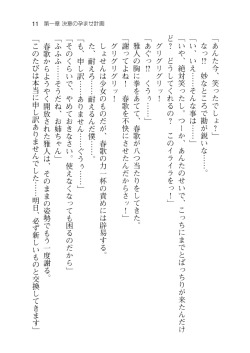 11　第一章 決意の孕ませ計画
「あんた今、笑ったでしょ？」
なっ!?　妙なところで勘が鋭いな……。
「い、いえ……そんな事は……」
「いや、絶対笑った。つーか、あんたのせいで、こっちにまでとばっちりが来たんだけ
ど？　どうしてくれるの、このイライラをっ！」
グリグリグリッ！
「あぐっ!?　くうぅ……」
雅人の胸に拳をあてて、春歌が八つ当たりをしてきた。
「謝ってよね！　春歌を不快にさせたんだからさッ！」
グリグリグリッ！
しょせんは少女のものだが、春歌の力一杯の責めには辟易する。
た、耐えろ……耐えるんだ僕……。
「も、申し訳……ありません……ぐうぅ……」
「そのくらいで、やめておきなさい。使えなくなっても困るのだから」
「ふふふ……そうだね、お姉ちゃん」
春歌からようやく開放された雅人は、そのままの姿勢でもう一度謝る。
「このたびは本当に申し訳ありませんでした……明日、必ず新しいものと交換してきます」